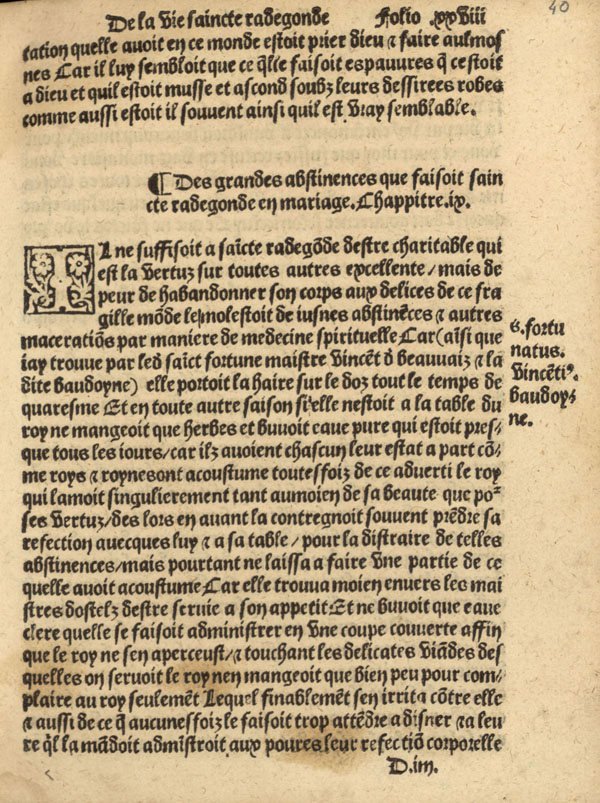 De la vie saincte radegonde Folio .xxviii
40
tation quelle auoit en ce monde estoit prier dieu ⁊ faire aulmos
nes Car il luy sembloit que ce q̄lle faisoit es pauures q̄ ce estoit
a dieu et quil estoit musse et ascond soubz leurs dessirees robes
comme aussi estoit il souuent ainsi quil est vray semblable.
¶ Des grandes abstinences que faisoit sain
cte radegonde en mariage. Chappitre .ix.
IL ne suffisoit a saīcte radegōde destre charitable qui
est la vertuz sur toutes autres excellente / mais de
peur de habandonner son corps aux delices de ce fra
gille mōde le molestoit de iusnes abstinēces ⁊ autres
maceratiōs par maniere de medecine spirituelle Car (aīsi que
iay trouue par led̄ saīct fortune maistre vincēt d̄ beauuaiz ⁊ la
dite baudoyne) elle portoit la haire sur le doz tout le temps de
quaresme Et en toute autre saison si elle nestoit a la table du
roy ne mangeoit que herbes et buuoit eaue pure qui estoit pres-
que tous les iours / car ilz auoient chascun leur estat a part cō-
me roys ⁊ roynes ont acoustume toutesfoiz de ce aduerti le roy
qui lamoit singulierement tant au moien de sa beaute que po²
ses vertuz / des lors en auant la contregnoit souuent prēdre sa
refection auecques luy ⁊ a sa table / pour la distraire de telles
abstinences / mais pourtant ne laissa a faire vne partie de ce
quelle auoit acoustume Car elle trouua moien enuers les mai
stres dostelz destre seruie a son appetit Et ne buuoit que eaue
clere quelle se faisoit administrer en vne coupe couuerte affin
que le roy ne sen aperceust / ⁊ touchant les delicates viādes des
quelles on seruoit le roy nen mangeoit que bien peu pour com-
plaire au roy seulemēt Lequel finablemēt sen irrita cōtre elle
⁊ aussi de ce q̄ aucunesfoiz le faisoit trop attēdre a disner ⁊ a leu
re q̄l la mādoit admīstroit aux poures leur refectiō corporelle
D.iiii.
S. fortu
natus.
Vincēti⁹
baudoy-
ne.